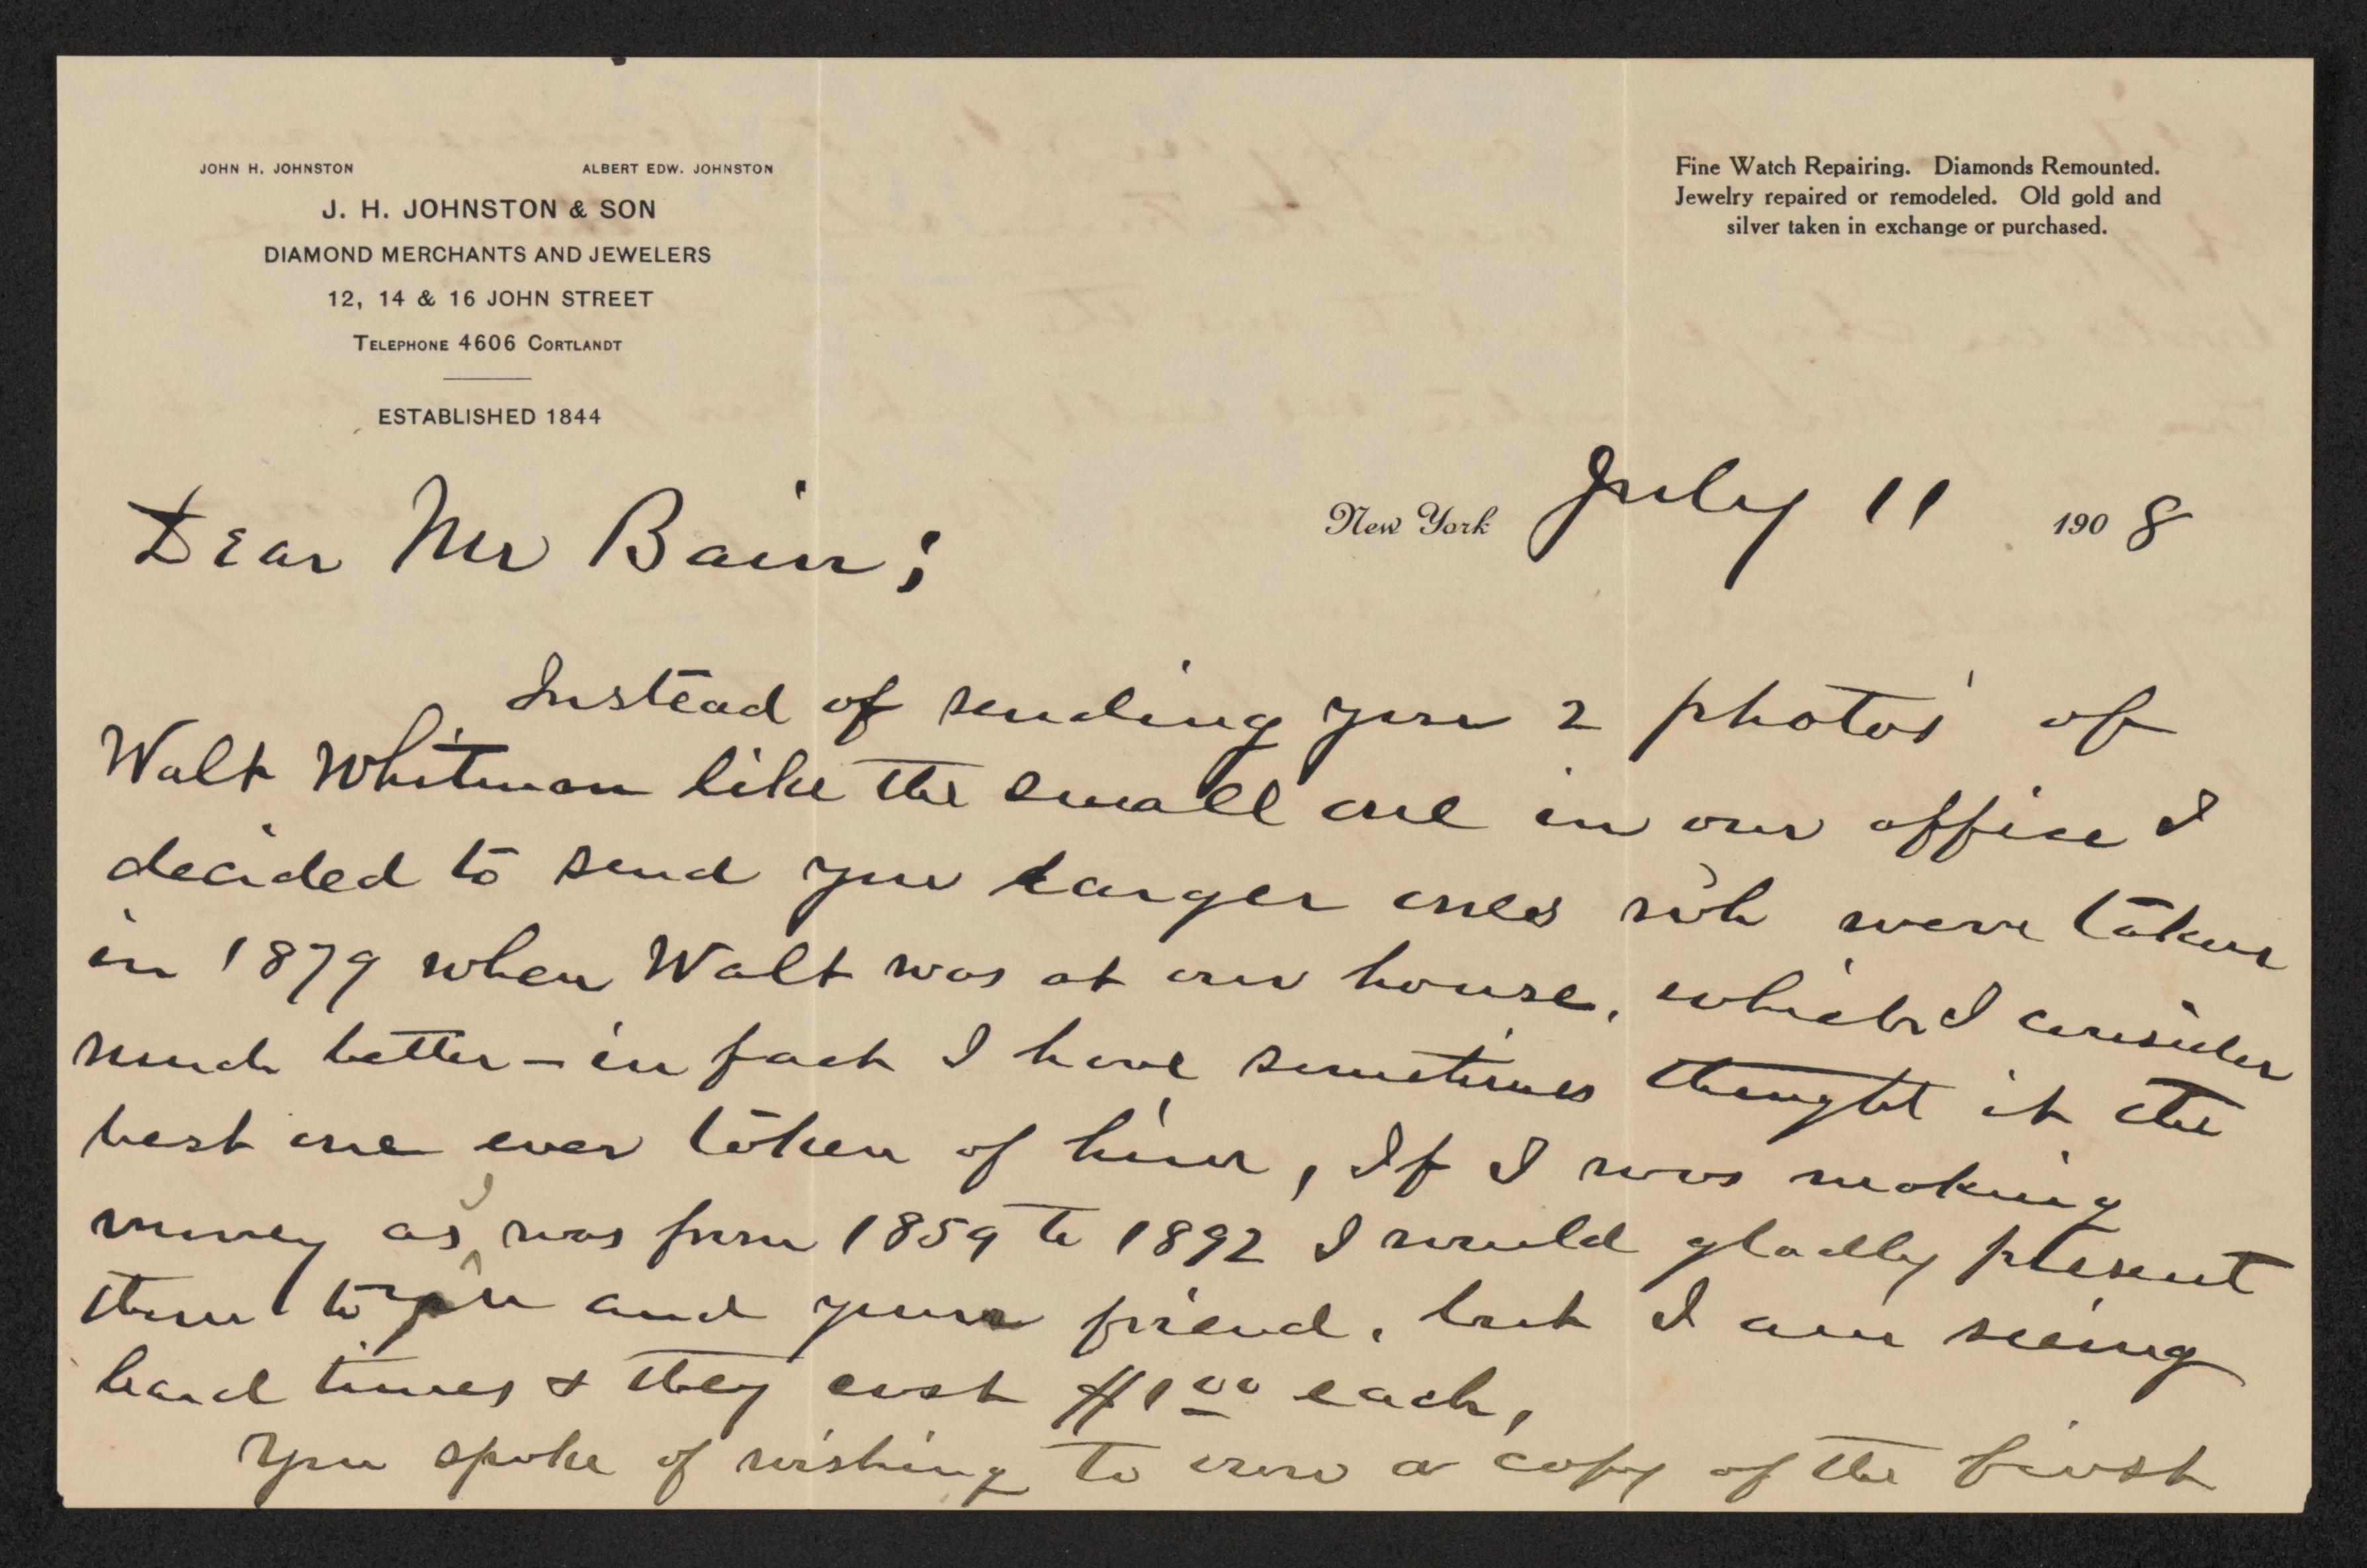 JOHN H. JOHNSTON ALBERT EDW. JOHNSTON
J. H. JOHNSTON & SON
DIAMOND MERCHANTS AND JEWELERS
12, 14 & 16 JOHN STREET
TELEPHONE 4606 CORTLANDT
ESTABLISHED 1844
Fine Watch Repairing. Diamonds Remounted.
Jewelry repaired or remodeled. Old gold and
silver taken in exchange or purchased.
New York July 11 1908
Dear Mr Bain;
Instead of sending you 2 photos' of
Walt Whitman like the small one in our office I
decided to send you larger ones wh were taken
in 1879 when Walt was at our house, which I consider
much better – in fact I have sometimes thought it the
best one ever taken of him, If I was making
money as I was from 1859 to 1892 I would gladly present
them to you and your friend, but I am seeing
hard times & they cost $1.00 each,
You spoke of wishing to own a copy of the first